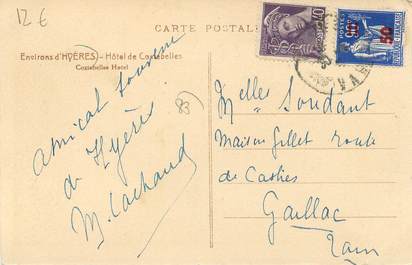 12 €
CARTE POSTALE
Environs d'HYÈRES - Hôtel de Costebelles
Costebelles Hotel
83)
amical souvenir
de Hyères
M. Lachaud
Melles Soudant
Maison Gillet Route
de Castres
Gaillac
Tarn
40
50